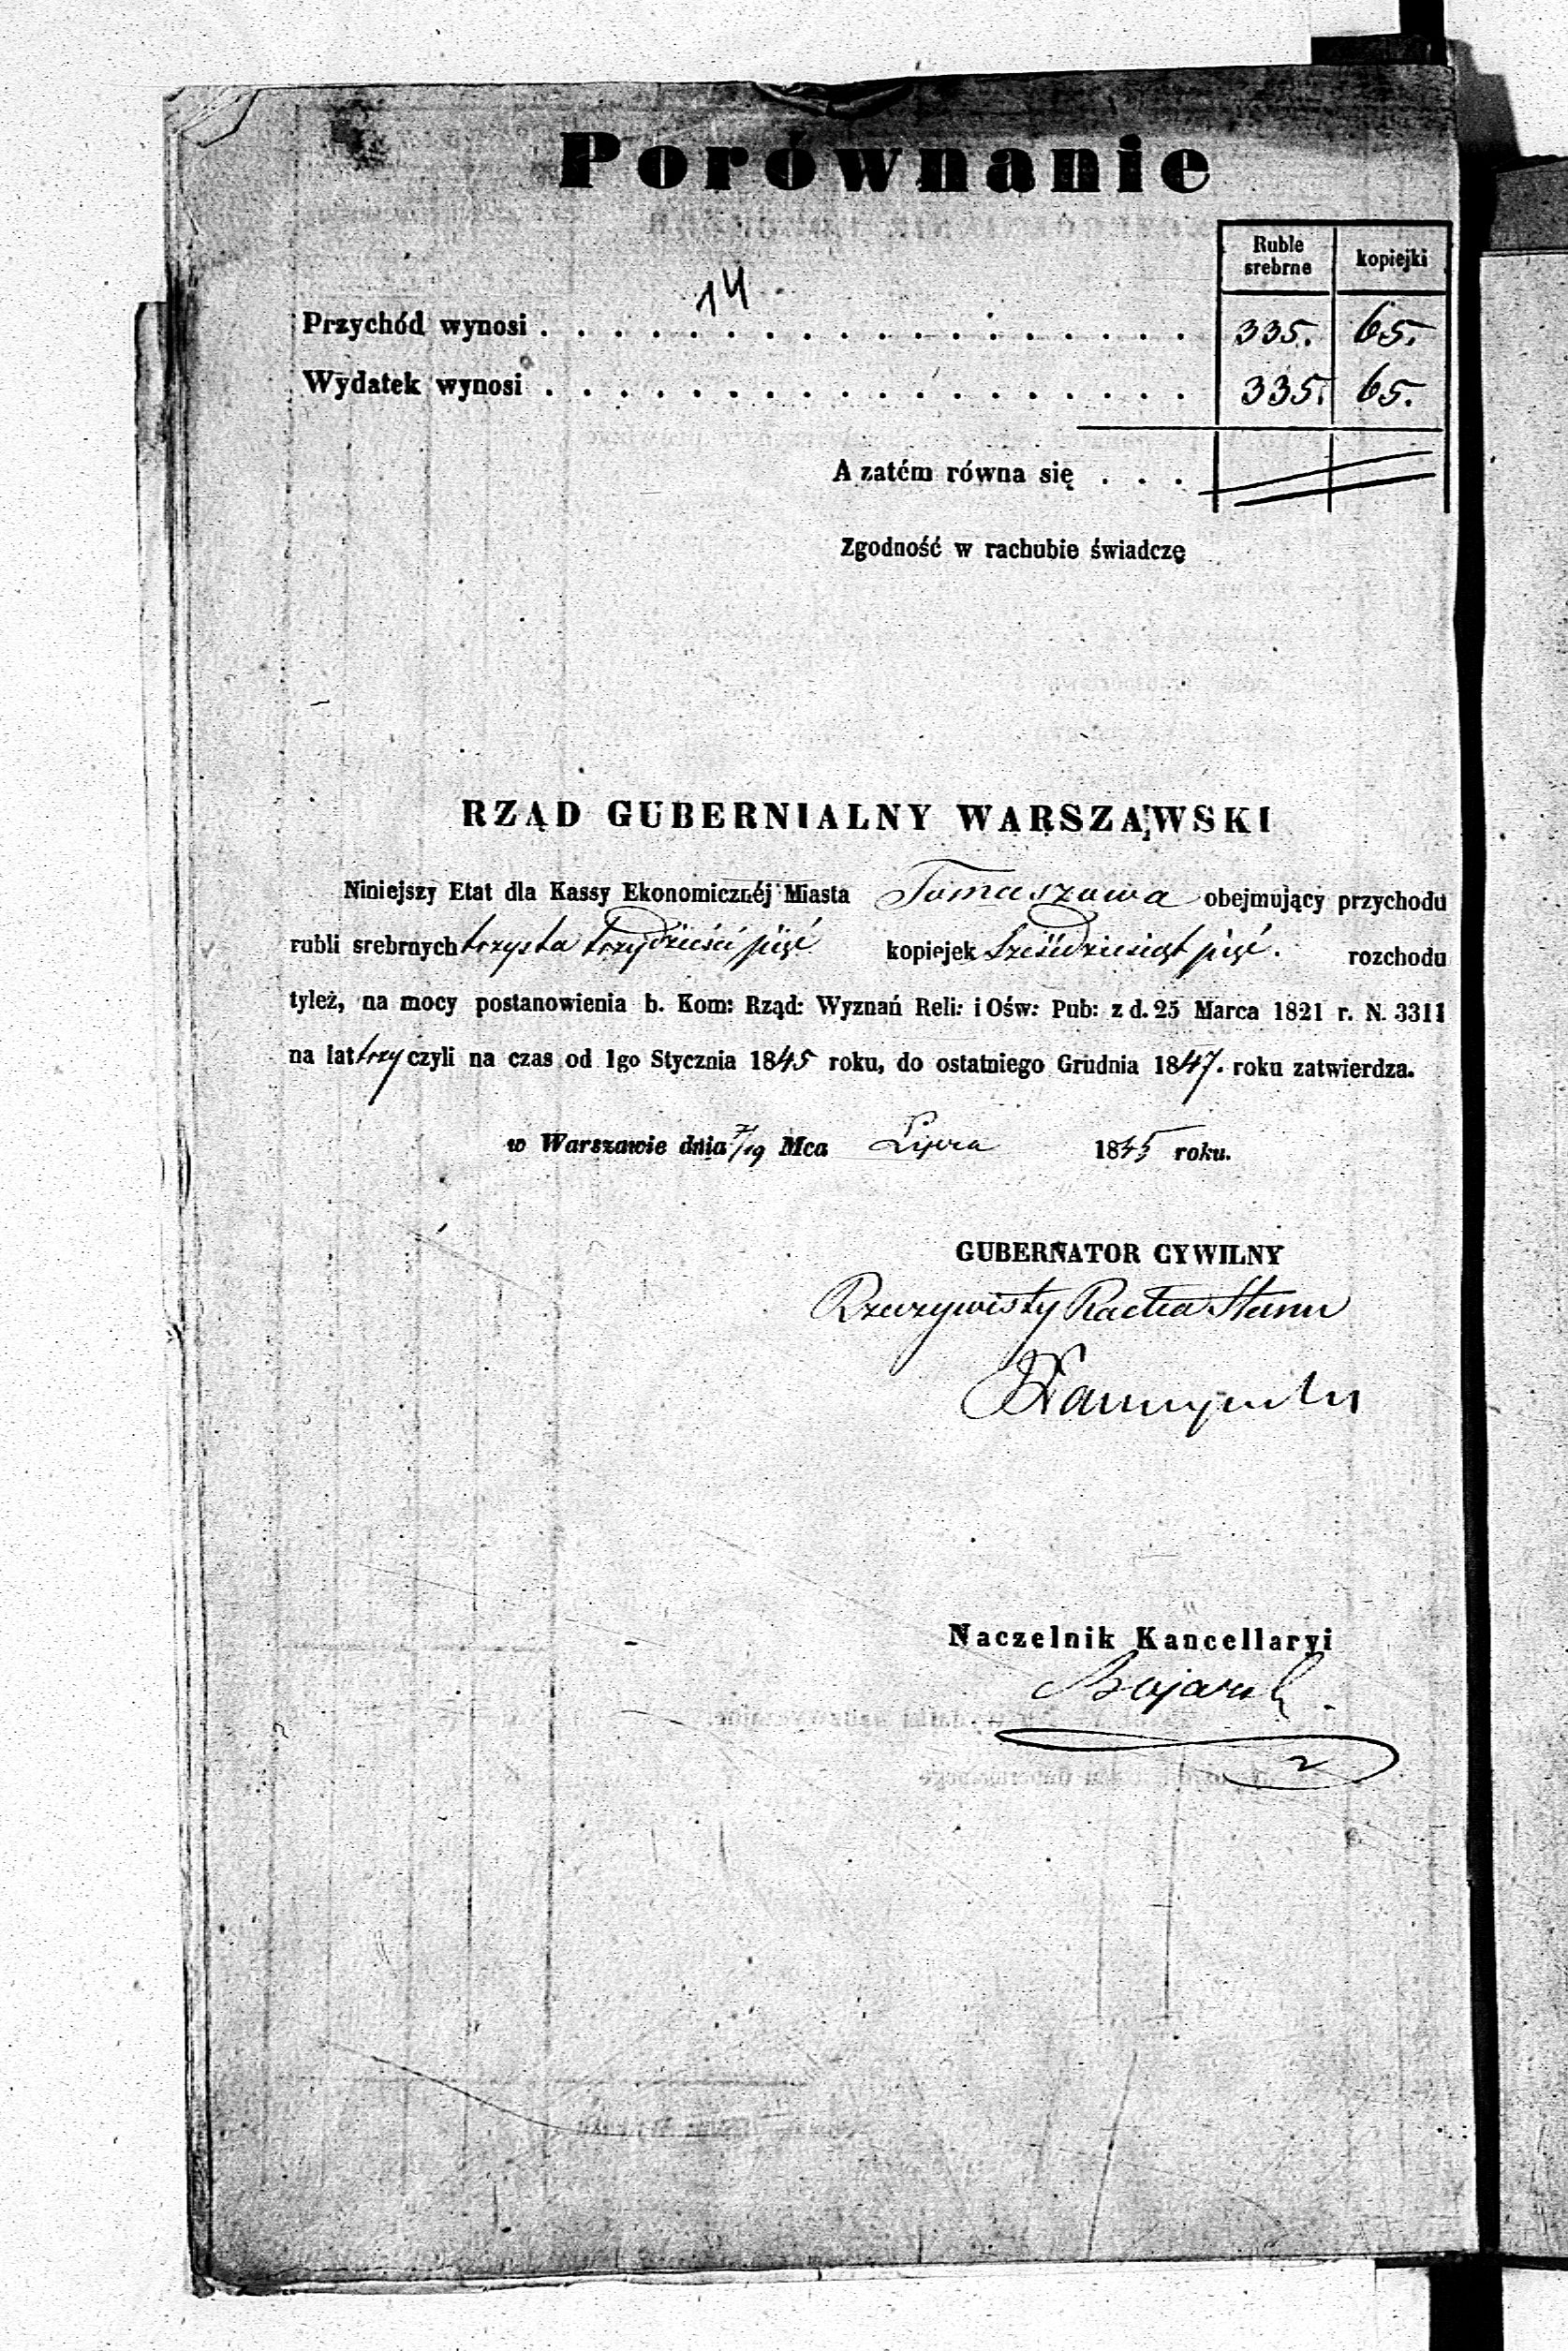 Porównanie
Ruble srebrne kopiejki
14
Przychód wynosi . . . . . . . . . . . . . . . . . . 335. 65.
Wydatek wynosi . . . . . . . . . . . . . . . . . . 335. 65.
A zatém równa się . . .
Zgodność w rachubie świadczę
RZĄD GUBERNIALNY WARSZAWSKI
Niniejszy Etat dla Kassy Ekonomicznéj Miasta Tomaszowa obejmujący przychodu
rubli srebrnych trzysta trzydzieści pięć kopiejek sześćdziesiąt pięć. rozchodu
tyleż, na mocy postanowienia b. Kom: Rząd: Wyznań Reli: i Ośw: Pub: z d. 25 Marca 1821 r. N. 3311
na lat trzy czyli na czas od 1go Stycznia 1845 roku, do ostatniego Grudnia 1847. roku zatwierdza.
w Warszawie dnia 7/19 Mca Lipca 1845 roku.
GUBERNATOR CYWILNY
Rzeczywisty Radca Stanu
Naczelnik Kancellaryi